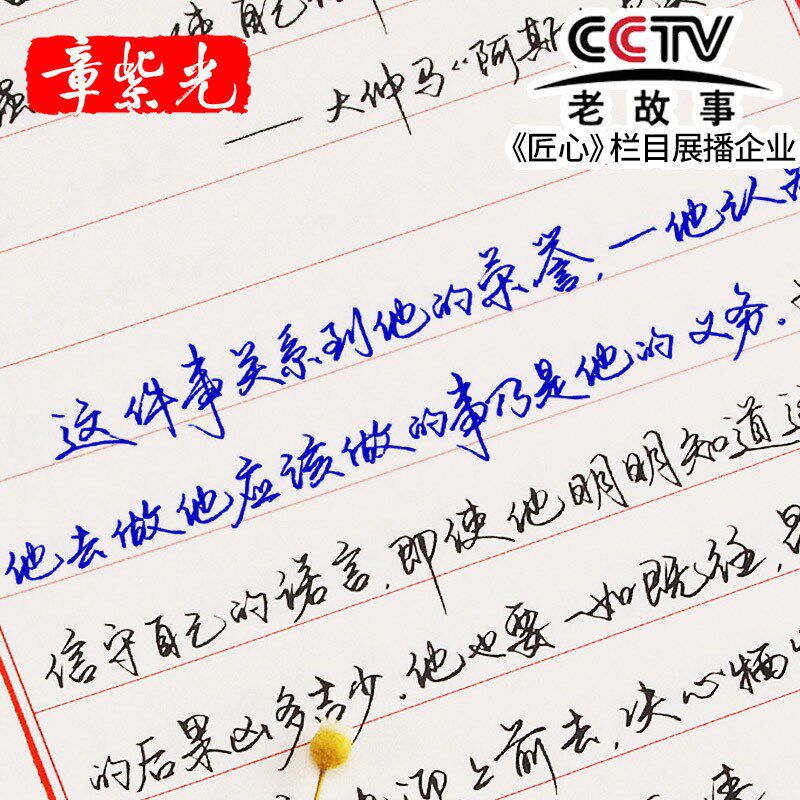 使自己
章紫光
CCTV
老故事
《匠心》栏目展播企业
——大仲马《阿斯
这件事关系到他的荣誉，一他认为
他去做他应该做的事乃是他的义务。
信守自己的诺言，即使他明明知道这
的后果凶多吉少。他也要一如既往，
迎上前去，决心牺